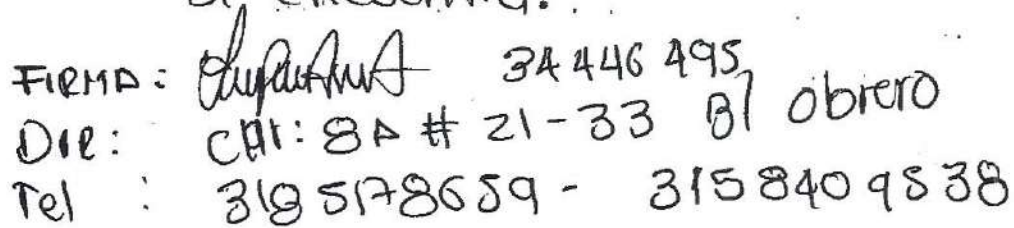 FIRMA: 34446495
DIR: Cll: 8A # 21-33 B/ obrero
Tel : 3185178659 - 3158409538